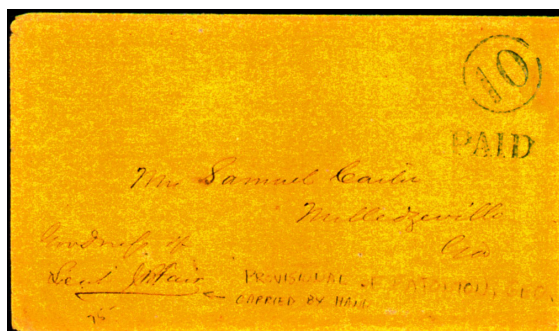 10
PAID
Mr Samuel Carter
Milledgeville
Geo
Goodness of
Lieut
PROVISIONAL OF EATONTON, GEO.
CARRIED BY HAND